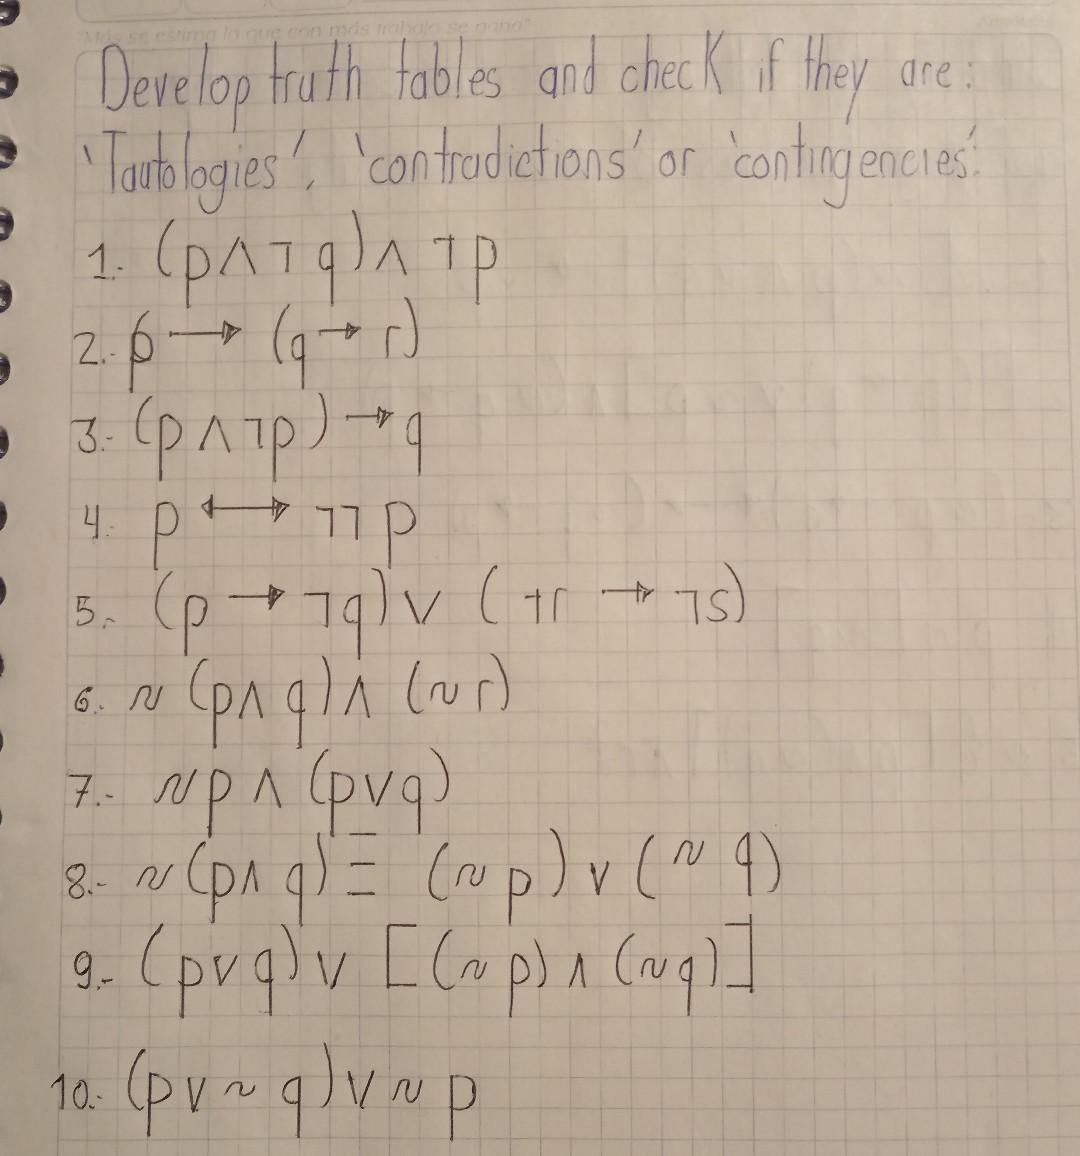 "Más se estima lo que con más trabajo se gana"
Develop truth tables and check if they are:
'Tautologies', 'contradictions' or 'contingencies'.
1.- (p∧¬q)∧¬p
2.- p → (q → r)
3.- (p∧¬p) → q
4.- p ↔ ¬¬p
5.- (p → ¬q)∨(+r → ¬s)
6.- ~(p∧q)∧(~r)
7.- ~p∧(p∨q)
8.- ~(p∧q) ≡ (~p)∨(~q)
9.- (p∨q)∨[(~p)∧(~q)]
10.- (p∨~q)∨~p